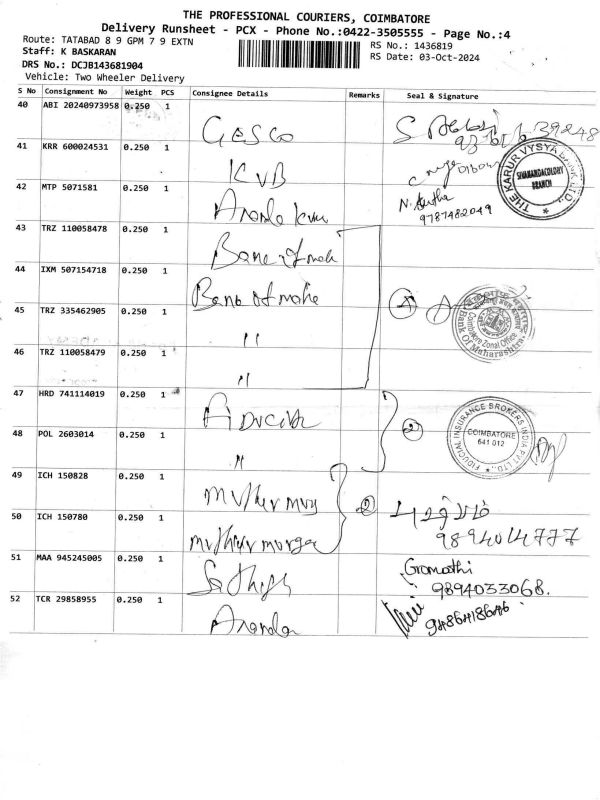 THE PROFESSIONAL COURIERS, COIMBATORE
Delivery Runsheet - PCX - Phone No.:0422-3505555 - Page No.:4
Route: TATABAD 8 9 GPM 7 9 EXTN
RS No.: 1436819
Staff: K BASKARAN
RS Date: 03-Oct-2024
DRS No.: DCJB143681904
Vehicle: Two Wheeler Delivery
S No Consignment No Weight PCS Consignee Details Remarks Seal & Signature
40 ABI 20240973958 0.250 1
Gesco
39248
41 KRR 600024531 0.250 1
KVB
THE KARUR VYSYA BANK LTD.
SIVANANDACOLONY
BRANCH
42 MTP 5071581 0.250 1
Ananda
9787482049
43 TRZ 110058478 0.250 1
Bane of mah
44 IXM 507154718 0.250 1
Bano of mahe
4
Bank Of Maharashtra
Coimbatore Zonal Office
45 TRZ 335462905 0.250 1
"
46 TRZ 110058479 0.250 1
"
47 HRD 741114019 0.250 1
2
FIDUCIAL INSURANCE BROKERS INDIA PVT LTD.,
COIMBATORE
641 012
48 POL 2603014 0.250 1
"
49 ICH 150828 0.250 1
2
50 ICH 150780 0.250 1
muthu muruga
9894014777
51 MAA 945245005 0.250 1
Sathish
Gromathi
9894033068.
52 TCR 29858955 0.250 1
Ananda
9486418646